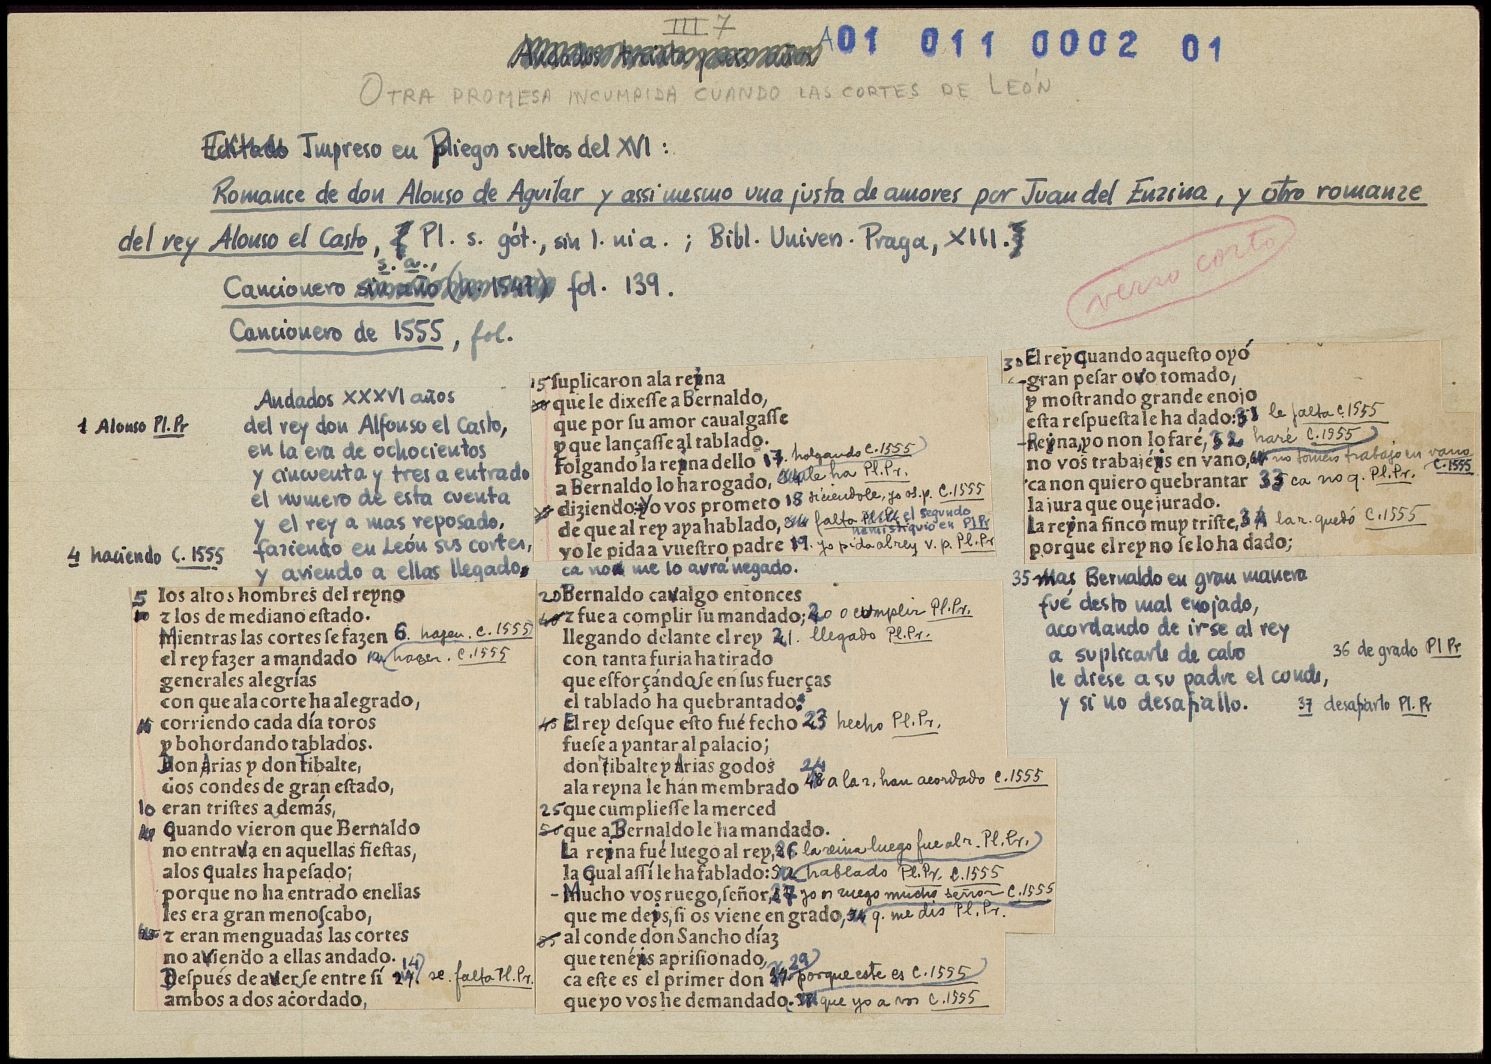 III 7
A01 011 0002 01
OTRA PROMESA INCUMPLIDA CUANDO LAS CORTES DE LEÓN
Editado Impreso en Pliegos sveltos del XVI:
Romance de don Alonso de Aguilar y assi mesmo una justa de amores por Juan del Enzina, y otro romanze
del rey Alonso el Casto, Pl. s. gót., sin l. ni a. ; Bibl. Univen. Praga, XIII.
verso corto
s. a.,
Cancionero sin año (h. 1547) fol. 139.
Cancionero de 1555, fol.
Andados XXXVI años
1 Alonso Pl. Pr
del rey don Alfonso el Casto,
en la era de ochocientos
y cincuenta y tres a entrado
el numero de esta cuenta
y el rey a mas reposado,
4 haciendo C. 1555
faziendo en León sus cortes,
y aviendo a ellas llegado,
5 los altos hombres del reyno
z los de mediano estado.
Mientras las cortes se fazen 6. hazen. C. 1555
el rey fazer a mandado hazer. C. 1555
generales alegrías
con que ala corte ha alegrado,
corriendo cada día toros
y bohordando tablados.
Don Arias y don Tibalte,
dos condes de gran estado,
10 eran tristes además,
Quando vieron que Bernaldo
no entrava en aquellas fiestas,
alos quales ha pesado;
porque no ha entrado enellas
les era gran menoscabo,
z eran menguadas las cortes
no aviendo a ellas andado.
Después de averse entre sí 14) se. falta Pl. Pr.
ambos a dos acordado,
15 suplicaron ala reyna
que le dixesse a Bernaldo,
que por su amor caualgasse
y que lançasse al tablado.
Folgando la reyna dello 17. holgando C. 1555
a Bernaldo lo ha rogado, le ha Pl. Pr.
diziendo: Yo vos prometo 18 diciéndole, yo os. p. C. 1555
de que al rey aya hablado, falta el segundo hemistiquio en Pl Pr
yo le pida a vuestro padre 19. yo pida al rey v. p. Pl. Pr
ca no me lo avrá negado.
20 Bernaldo cavalgo entonces
z fue a complir su mandado; 20 o cumplir Pl. Pr.
llegando delante el rey 21. llegado Pl. Pr.
con tanta furia ha tirado
que esforçándose en sus fuerças
el tablado ha quebrantado:
El rey desque esto fué fecho 23 hecho Pl. Pr.
fuese a yantar al palacio;
don Tibalte y Arias godos 24
ala reyna le han membrado a la r. han acordado C. 1555
25 que cumpliesse la merced
que a Bernaldo le ha mandado.
La reyna fué luego al rey, 26 la reina luego fue al r. Pl. Pr.
la qual assí le ha fablado: hablado Pl. Pr. C. 1555
- Mucho vos ruego, señor, 27 yo os ruego mucho señor C. 1555
que me deys, si os viene en grado, q. me dis Pl. Pr.
al conde don Sancho díaz
que tenéis aprisionado,
ca este es el primer don 29 porque este es C. 1555
que yo vos he demandado. que yo a vos C. 1555
30 El rey quando aquesto oyó
gran pesar ovo tomado,
y mostrando grande enojo
esta respuesta le ha dado: 31 le falta C. 1555
- Reyna, yo non lo faré, 32 haré C. 1955
no vos trabajéis en vano, no toméis trabajo en vano C. 1555
ca non quiero quebrantar 33 ca no q. Pl. Pr.
la jura que oue jurado.
La reyna fincó muy triste, 34 la r. quedó C. 1555
porque el rey no se lo ha dado;
35 mas Bernaldo en gran manera
fué desto mal enojado,
acordando de irse al rey
a suplicarle de cabo 36 de grado Pl Pr
le diese a su padre el conde,
y si no desafiallo. 37 desafiarlo Pl. Pr